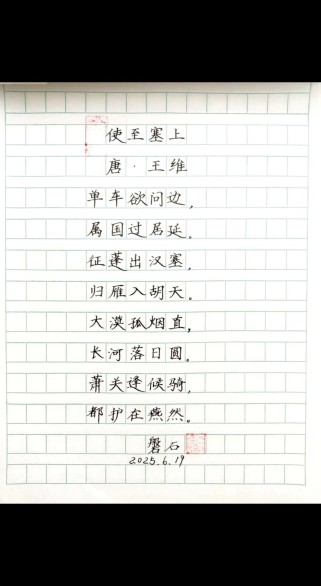 使至塞上
唐·王维
单车欲问边,
属国过居延。
征蓬出汉塞,
归雁入胡天。
大漠孤烟直,
长河落日圆。
萧关逢候骑,
都护在燕然。
磐石
2025.6.19